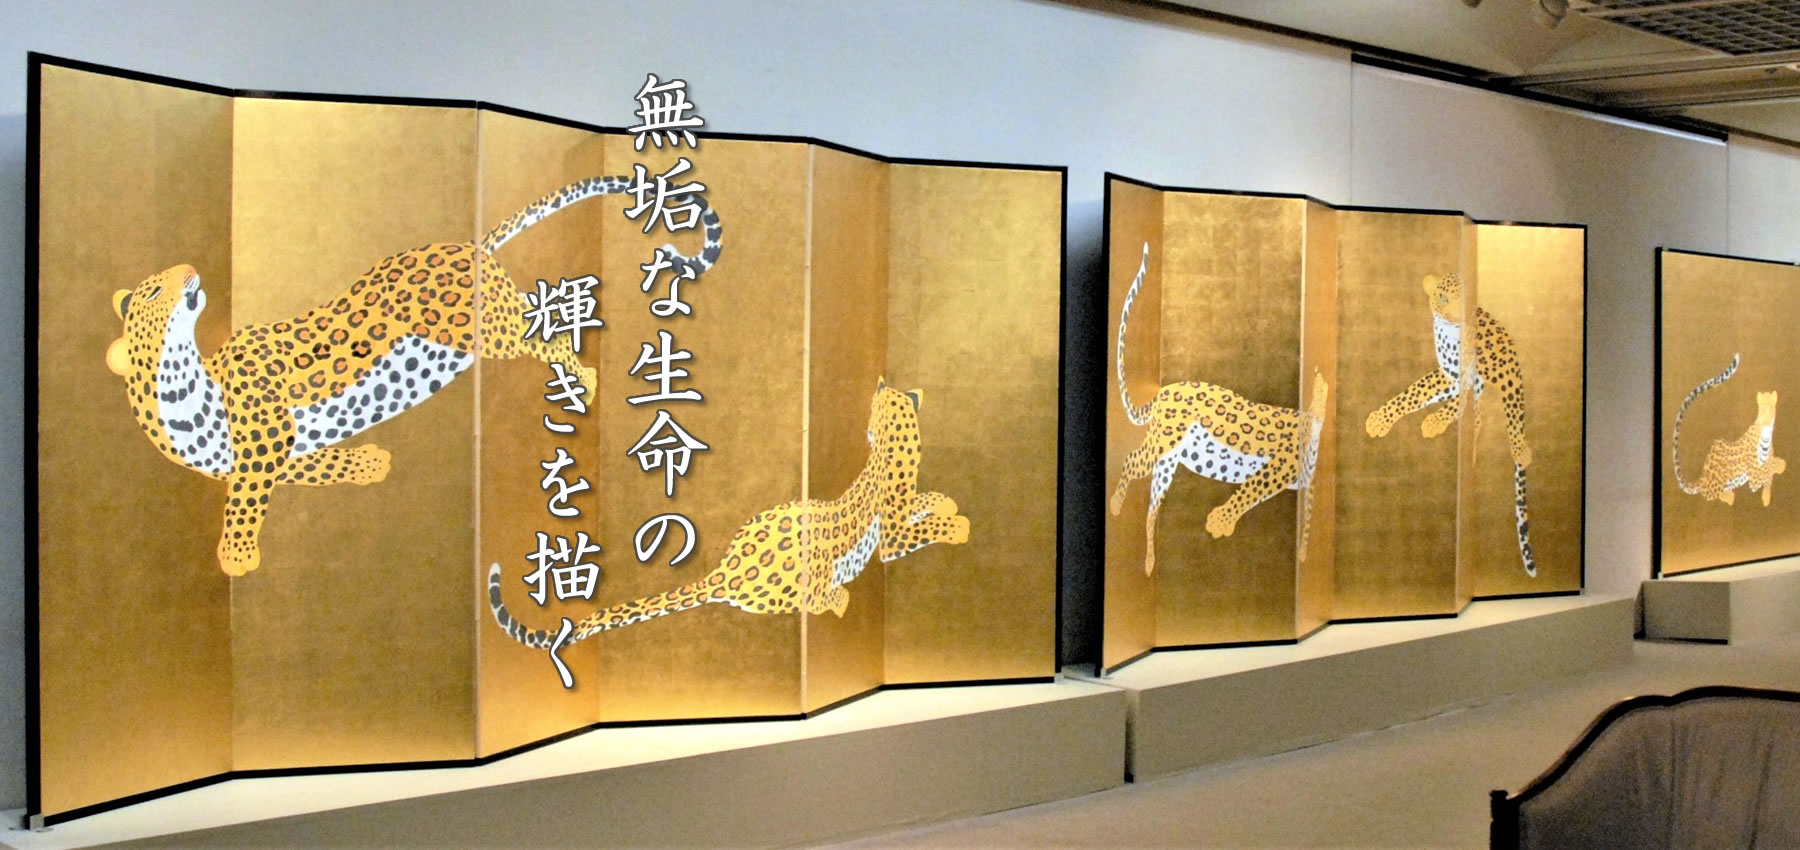 無垢な生命の
輝きを描く